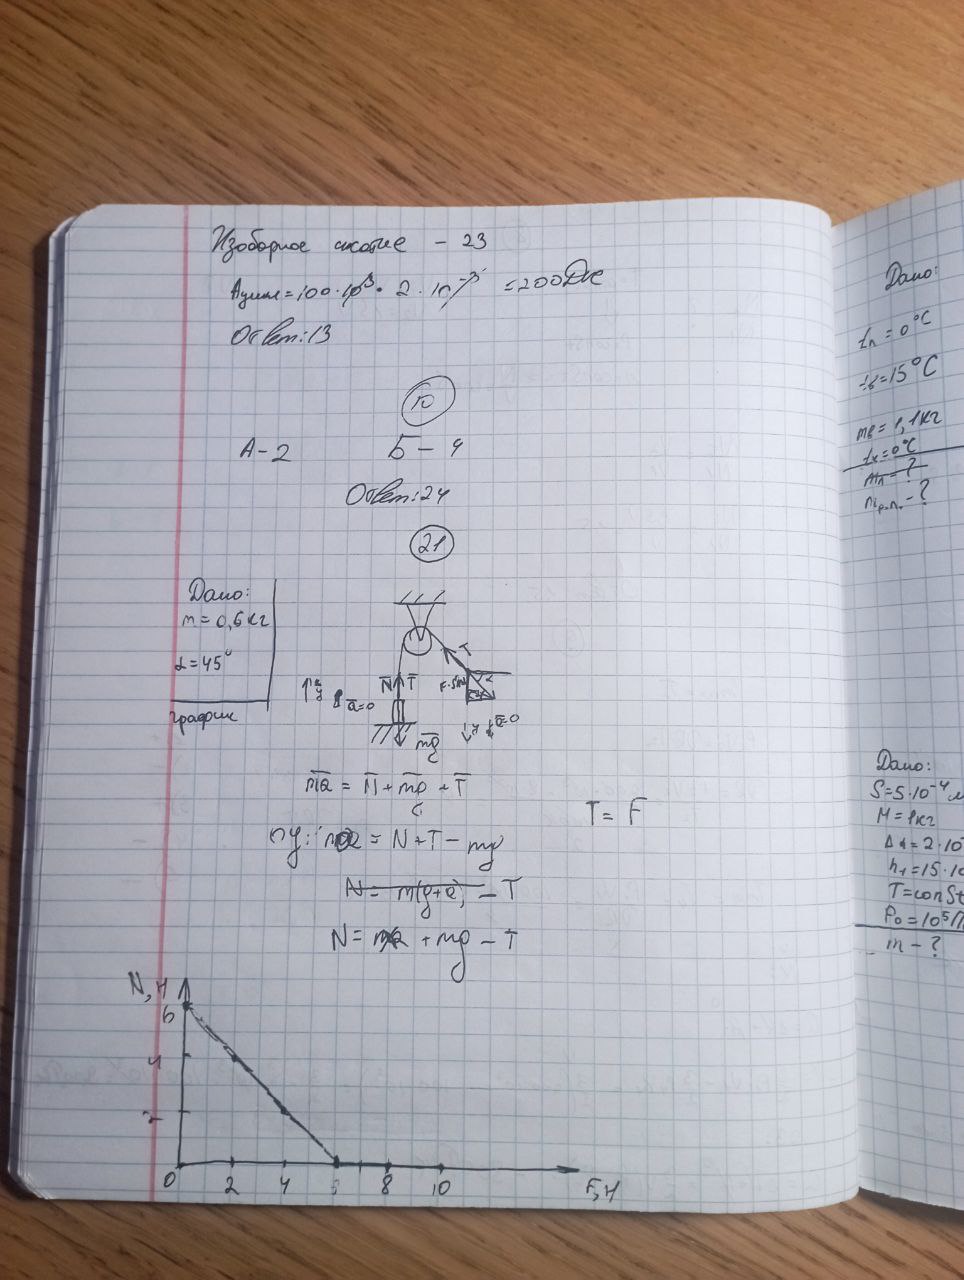 Изобарное сжатие - 23
Aцикл=100·10³·2·10⁻³=200Дж
Ответ:13
10
А-2 Б-4
Ответ:24
21
Дано:
m=0,6кг
α=45°
График
y a=0 N T T α y a=0
mg
ma = N+mg+T
T= F
oy: ma = N+T-mg
N= m(g+a) - T
N= ma + mg - T
N,H
6
4
2
0 2 4 6 8 10 F,H
Дано:
tл=0°C
tв=15°C
mв=1,1кг
tк=0°C
mл-?
Дано:
S=5·10⁻⁴м
M=1кг
h₁=15·10
T=const
P₀=10⁵П
m-?